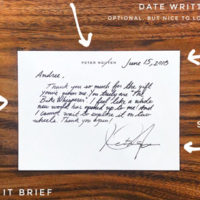 DATE WRITT
OPTIONAL, BUT NICE TO LO
PETER NGUYEN
June 15, 2018
Andree,
Thank you so much for the gift
you've given me. You truly are "The
Bike Whisperer." I feel like a whole
new world has opened up to me and
I cannot wait to explore it on new
wheels. Thank you again!
IT BRIEF